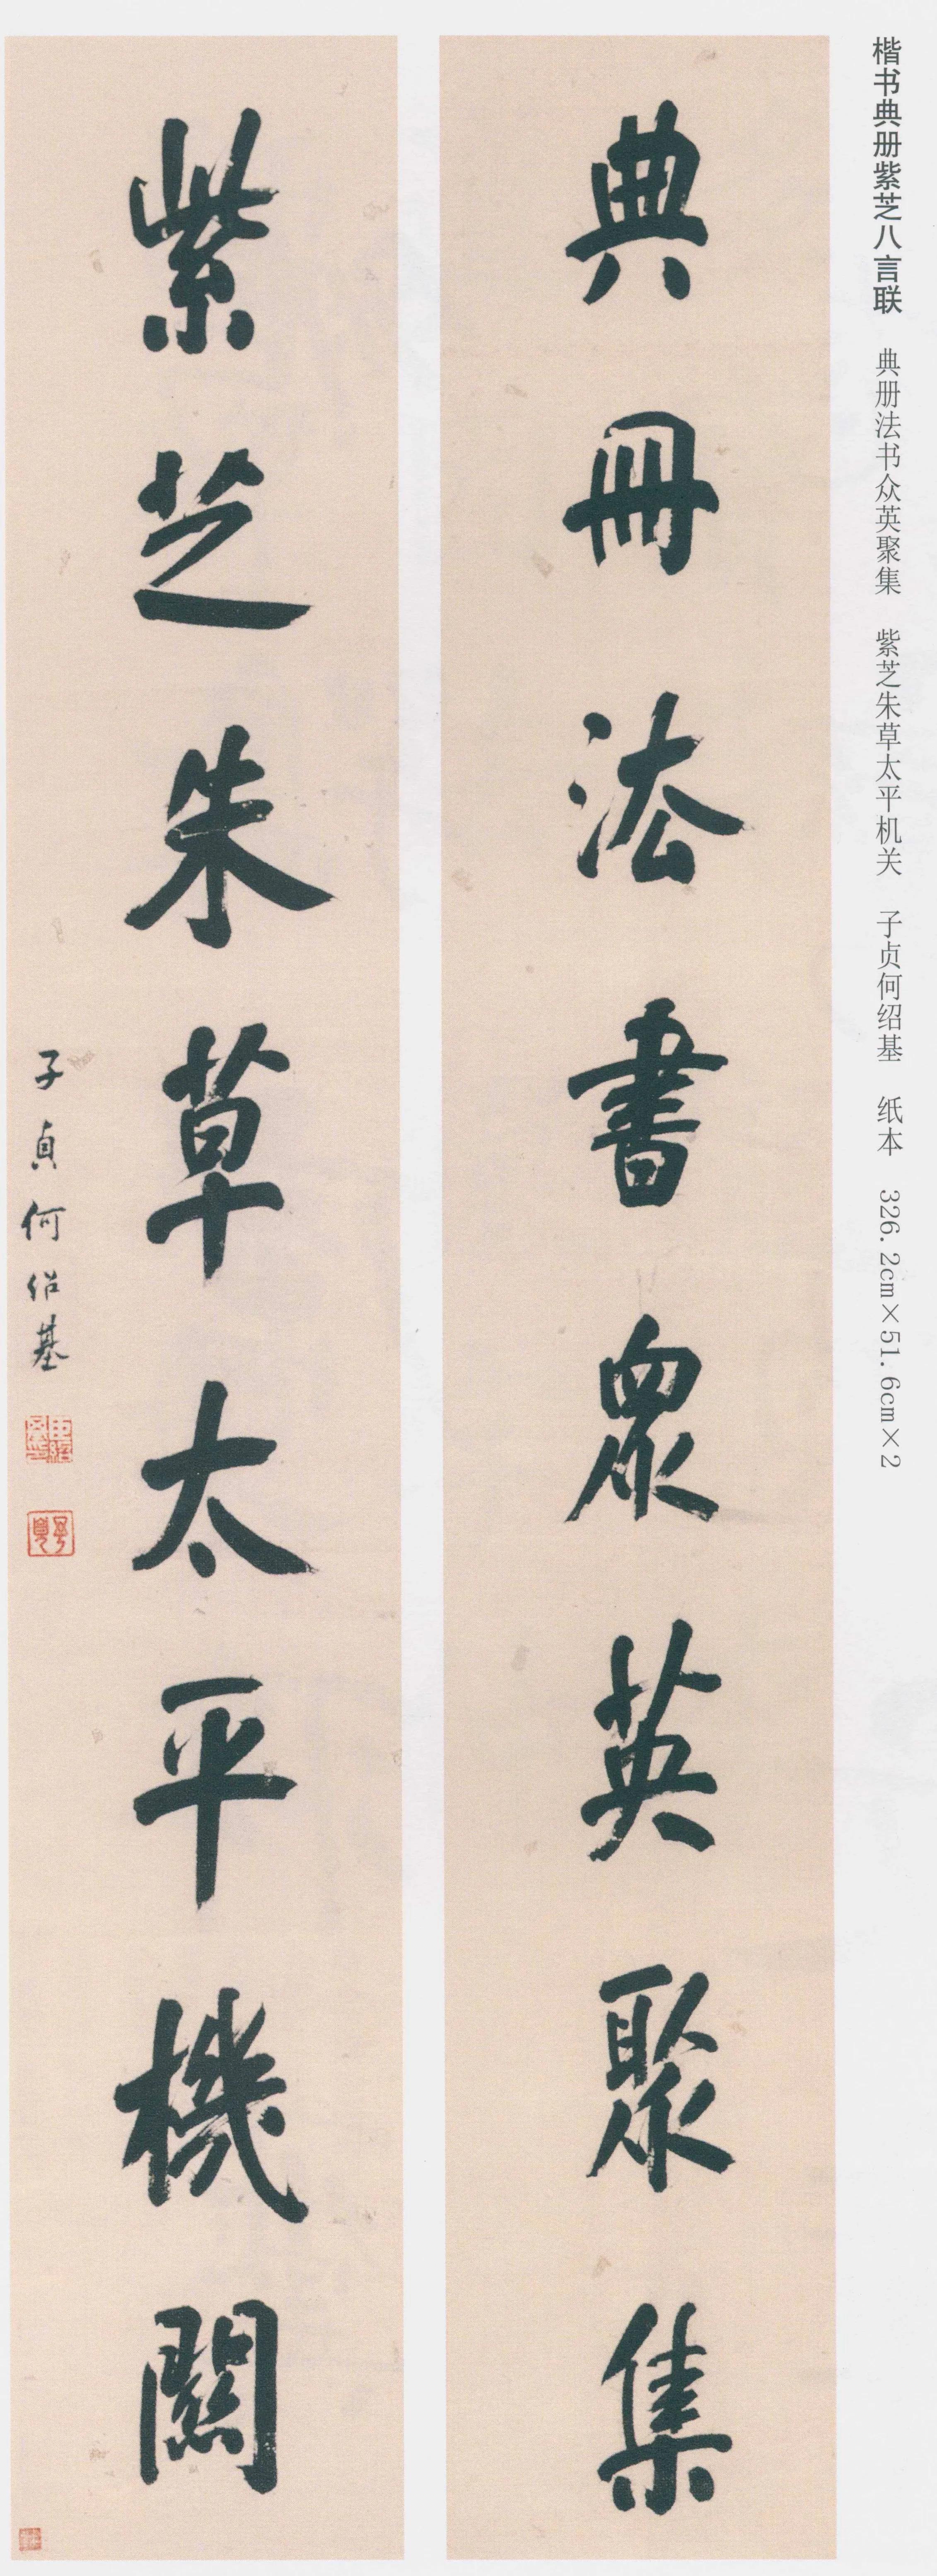 楷书典册紫芝八言联 典册法书众英聚集 紫芝朱草太平机关 子贞何绍基 纸本 326.2cm×51.6cm×2
典冊法書眾英聚集
紫芝朱草太平機關
子貞何紹基